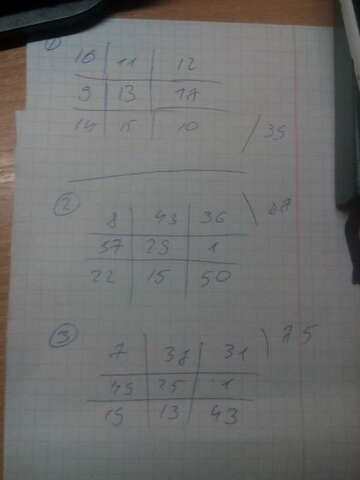 1
16 11 12
9 13 17
14 15 10 / 39
2
8 43 36 \ 87
57 29 1
22 15 50
3
7 38 31 \ 75
49 25 1
19 13 43